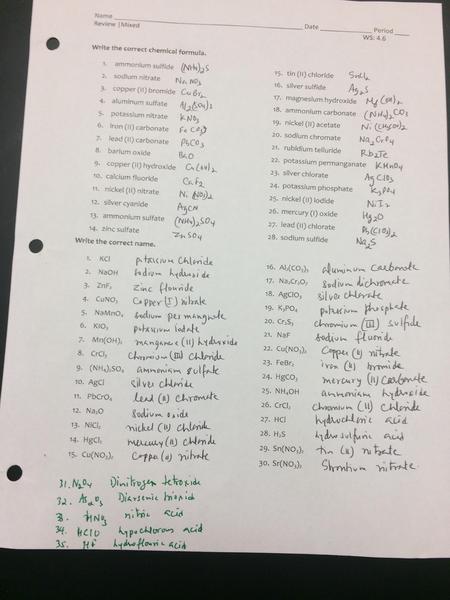 Name
Date
Period
Review |Mixed
WS: 4.6
Write the correct chemical formula.
1. ammonium sulfide (NH4)2S
2. sodium nitrate NaNO3
3. copper (II) bromide CuBr2
4. aluminum sulfate
5. potassium nitrate KNO3
6. iron (II) carbonate FeCO3
7. lead (II) carbonate PbCO3
8. barium oxide BaO
9. copper (II) hydroxide Cu(OH)2
10. calcium fluoride CaF2
11. nickel (II) nitrate Ni(NO3)2
12. silver cyanide AgCN
13. ammonium sulfate (NH4)2SO4
14. zinc sulfate ZnSO4
15. tin (II) chloride SnCl2
16. silver sulfide Ag2S
17. magnesium hydroxide Mg(OH)2
18. ammonium carbonate (NH4)2CO3
19. nickel (II) acetate
20. sodium chromate Na2CrO4
21. rubidium telluride Rb2Te
22. potassium permanganate KMnO4
23. silver chlorate AgClO3
24. potassium phosphate K3PO4
25. nickel (II) iodide NiI2
26. mercury (I) oxide Hg2O
27. lead (II) chlorite Pb(ClO2)2
28. sodium sulfide Na2S
Write the correct name.
1. KCl potassium chloride
2. NaOH sodium hydroxide
3. ZnF2 Zinc flouride
4. CuNO3 Copper (I) nitrate
5. NaMnO4 sodium permangnate
6. KIO3 potassium Iodate
7. Mn(OH)2 manganese (II) hydroxide
8. CrCl3 Chromium (III) Chloride
9. (NH4)2SO4 ammonium sulfate
10. AgCl silver Chloride
11. PbCrO4 lead (II) Chromate
12. Na2O Sodium oxide
13. NiCl2 nickel (II) chloride
14. HgCl2 mercury (II) chloride
15. Cu(NO3)2 Copper (II) nitrate
16. Al2(CO3)3 aluminum Carbonate
17. Na2Cr2O7 Sodium dichromate
18. AgClO3 silver chlorate
19. K3PO4 potassium phosphate
20. Cr2S3 chromium (III) sulfide
21. NaF Sodium fluoride
22. Cu(NO3)2 Copper (II) nitrate
23. FeBr2 iron (II) bromide
24. HgCO3 mercury (II) Carbonate
25. NH4OH ammonium hydroxide
26. CrCl2 Chromium (II) Chloride
27. HCl hydrochloric acid
28. H2S hydrosulfuric acid
29. Sn(NO3)2 tin (II) nitrate
30. Sr(NO3)2 Strontium nitrate
31. N2O4 Dinitrogen tetroxide
32. As2O3 Diarsenic trioxid
3. HNO3 nitric acid
34. HClO hypochlorous acid
35. HF hydroflouric acid